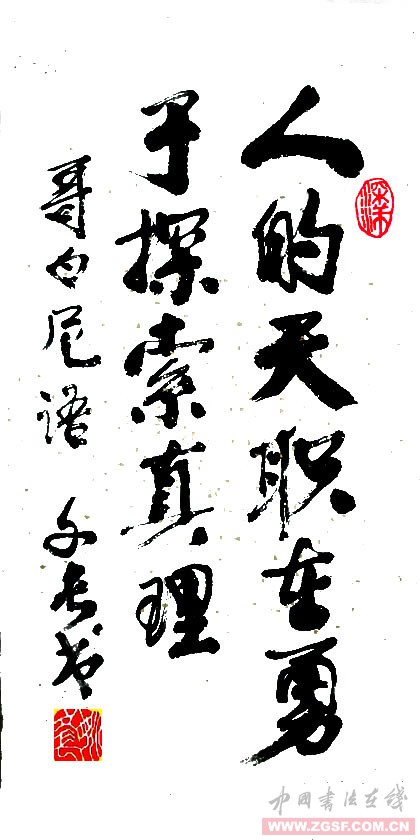 人的天职在勇
于探索真理
哥白尼语 文长书
中国书法在线
WWW.ZGSF.COM.CN